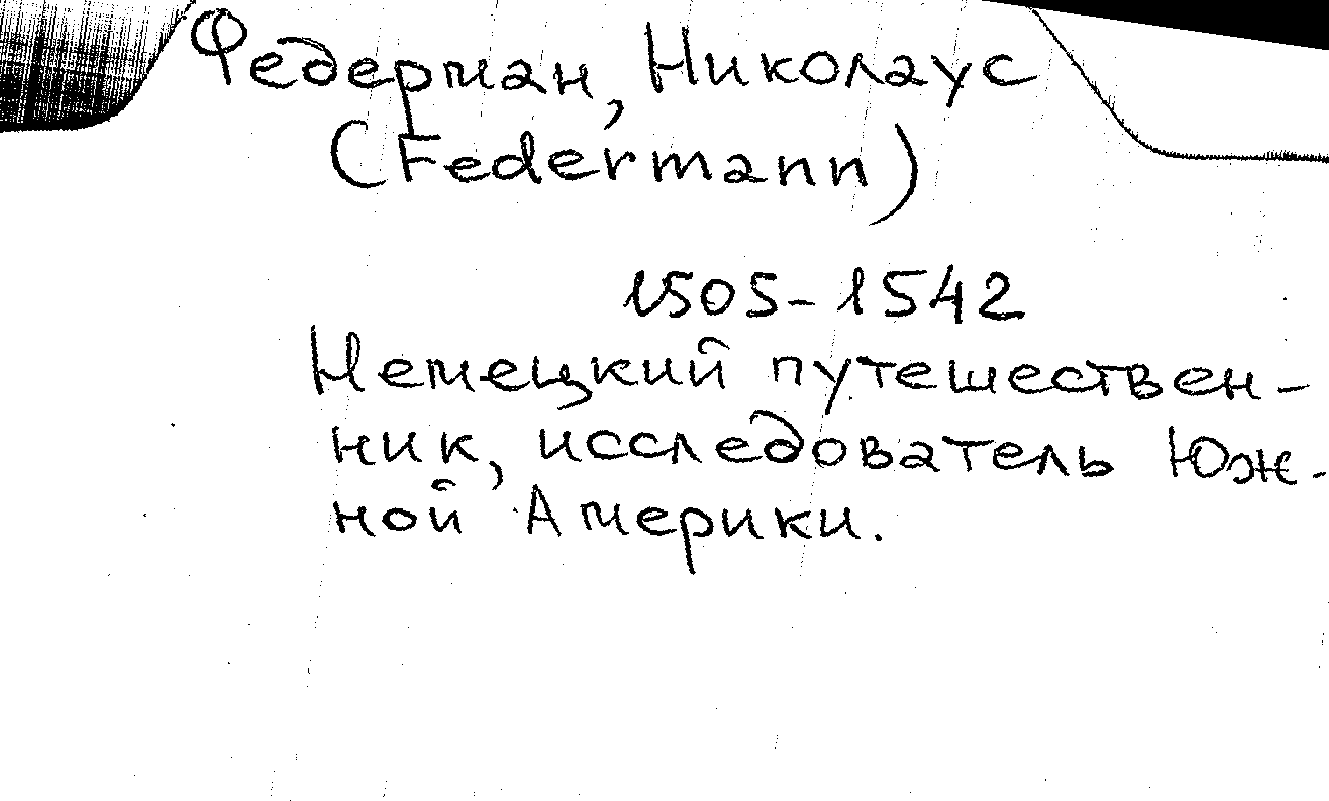 Федерман, Николаус
(Federmann)
1505-1542
Немецкий путешествен-
ник, исследователь Юж-
ной Америки.